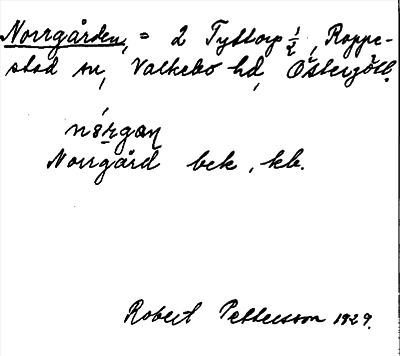 Norrgården, = 2 Tyttorp ½, Rappe-
stad sn, Valkebo hd, Östergötl.
Norrgård bek, kb.
Robert Pettersson 1929.